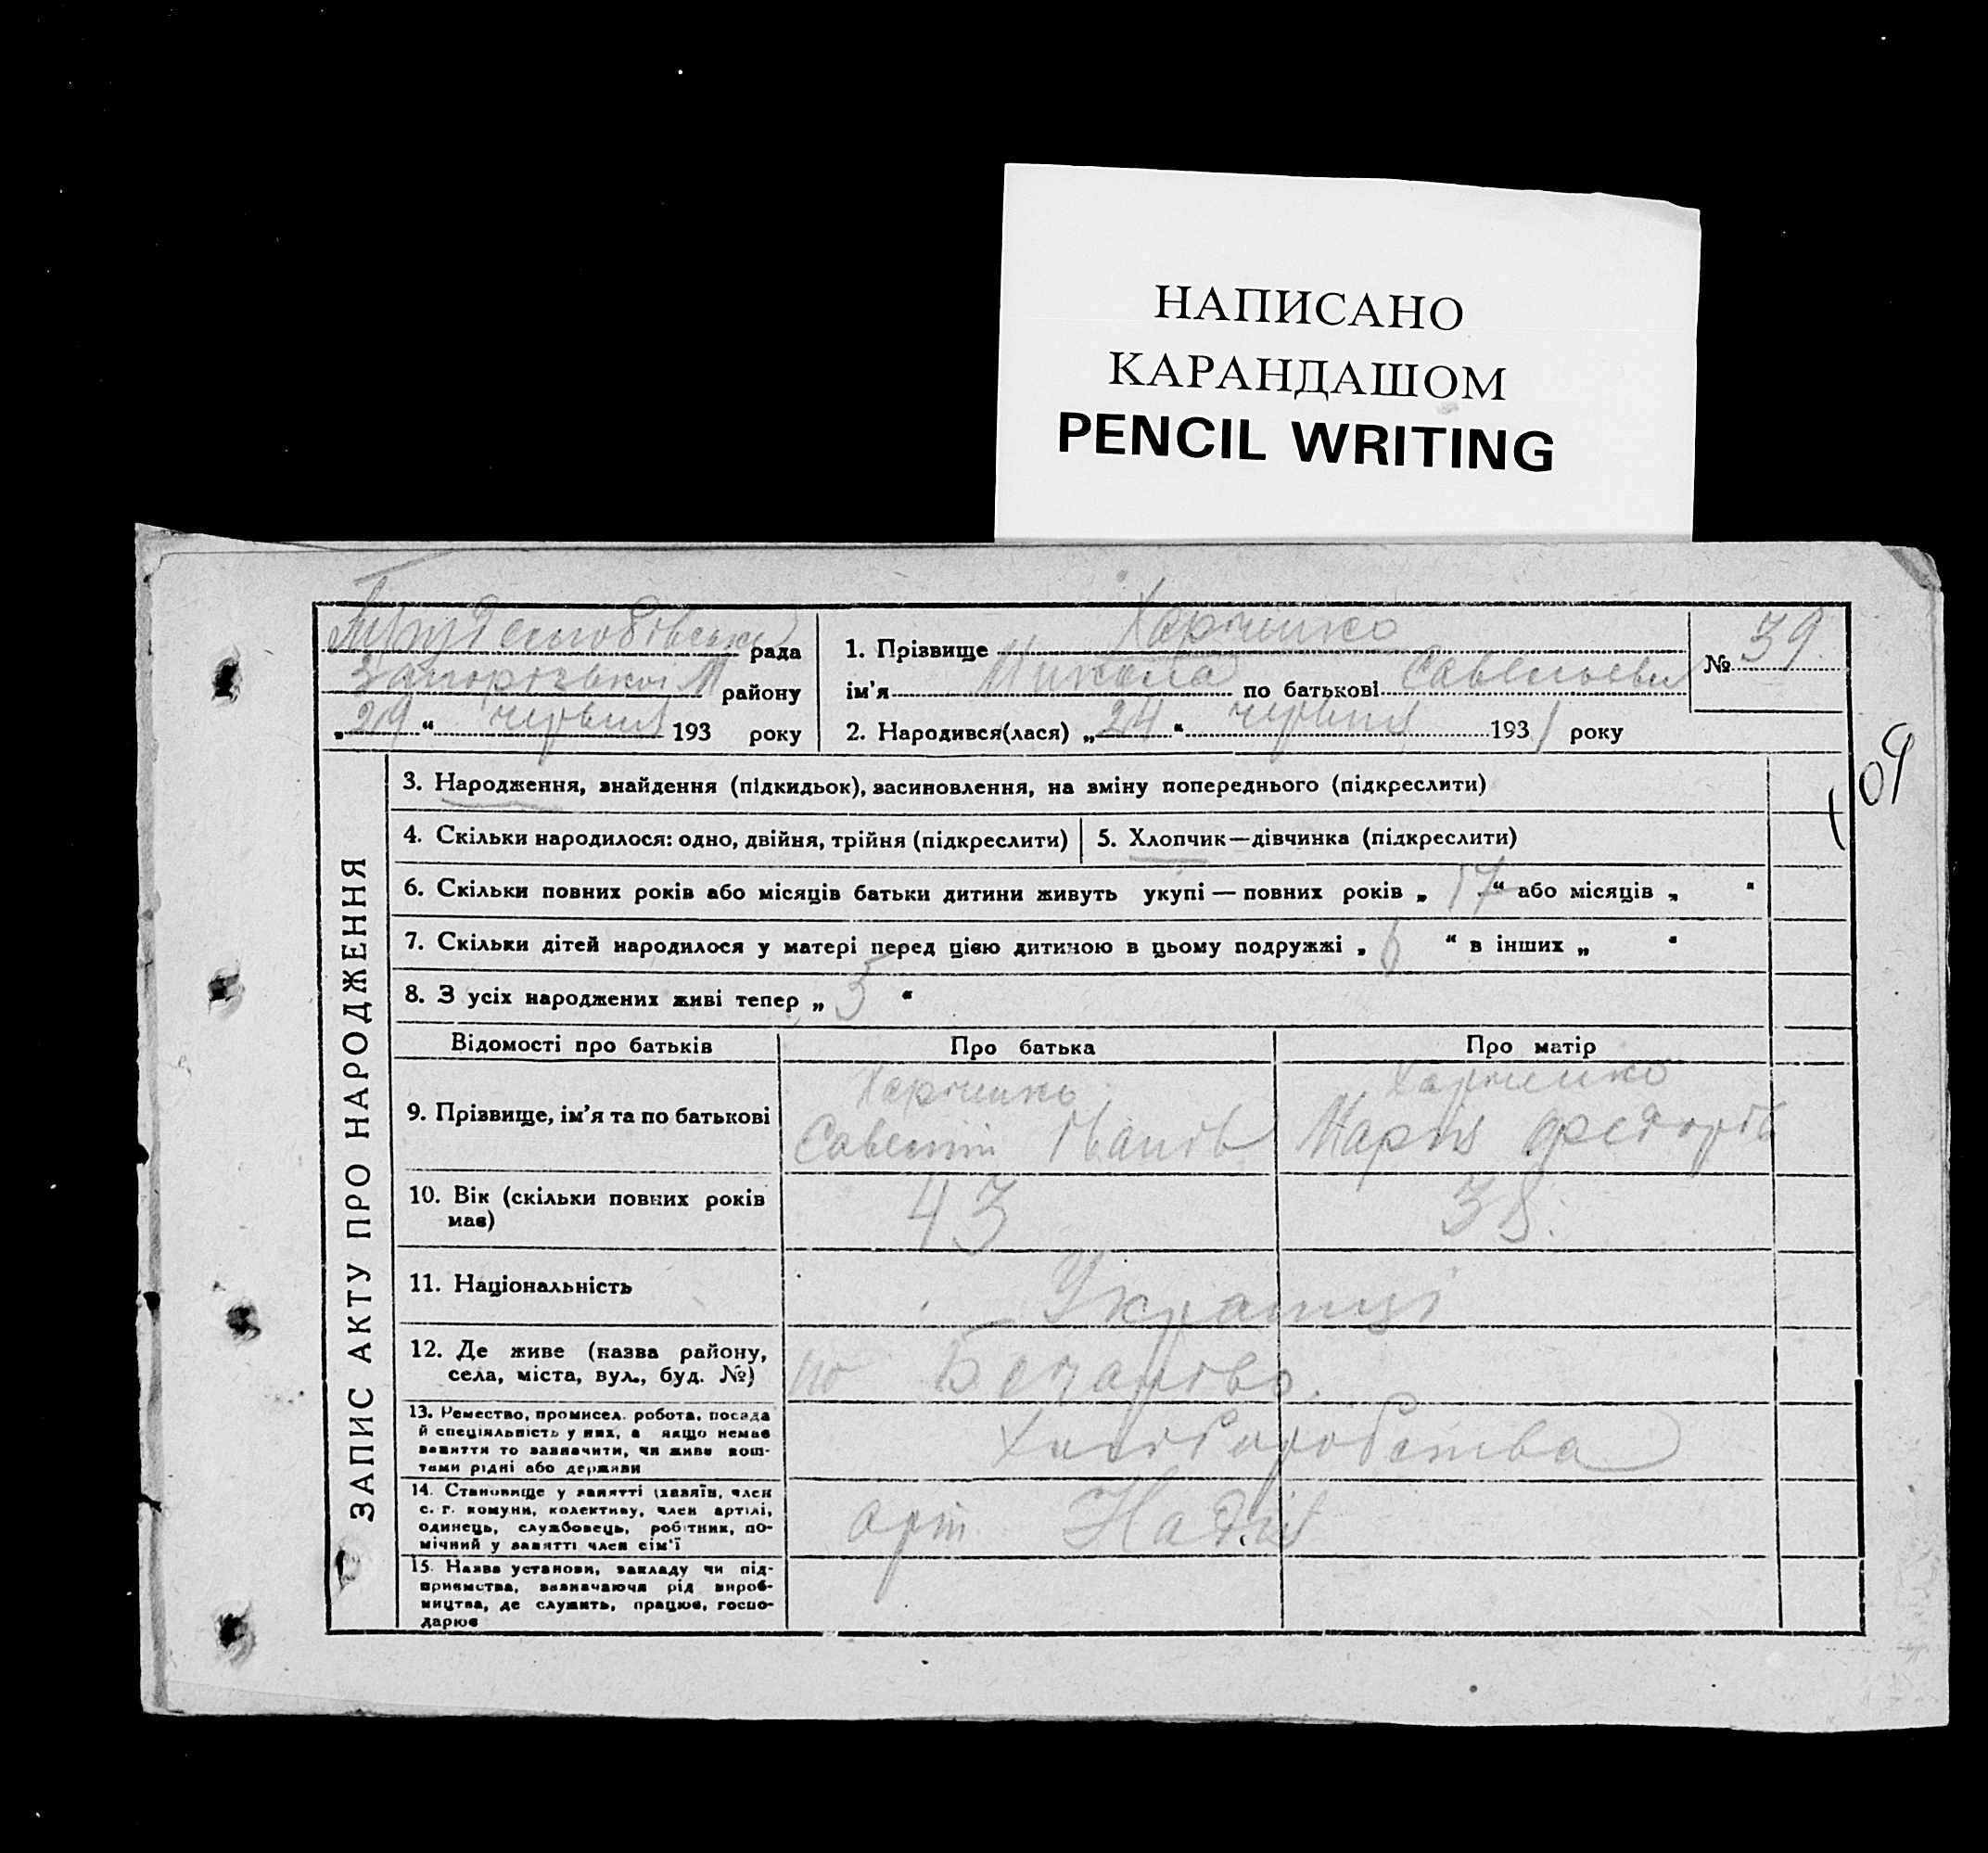 НАПИСАНО
КАРАНДАШОМ
PENCIL WRITING
рада
Запорізької М району
„29“ червня 193 року
1. Прізвище Харченко
ім’я Микола по батькові Савельеви
2. Народився(лася) „24“ червня 1931 року
№ 39
109
ЗАПИС АКТУ ПРО НАРОДЖЕННЯ
3. Народження, знайдення (підкидьок), засиновлення, на зміну попереднього (підкреслити)
4. Скільки народилося: одно, двійня, трійня (підкреслити)
5. Хлопчик—дівчинка (підкреслити)
6. Скільки повних років або місяців батьки дитини живуть укупі — повних років „17“ або місяців „ “
7. Скільки дітей народилося у матері перед цією дитиною в цьому подружжі „6“ в інших „ “
8. З усіх народжених живі тепер „5“
Відомості про батьків
Про батька
Про матір
9. Прізвище, ім’я та по батькові
Харченко
Савелій Іванів
Харченко
Марія Федорів
10. Вік (скільки повних років
має)
43
38.
11. Національність
Українці
12. Де живе (назва району,
села, міста, вул., буд. №)
13. Ремество, промисел, робота, посада
й спеціяльність у них, а якщо немає
заняття то зазначити, чи живе кош-
тами рідні або держави
Хліборобства
14. Становище у занятті (хазяїн, член
с. г. комуни, колективу, член артілі,
одинець, службовець, робітник, по-
мічний у занятті член сім’ї
арт Надія
15. Назва установи, закладу чи під-
приємства, зазначаючи рід вироб-
ництва, де служить, працює, госпо-
дарює